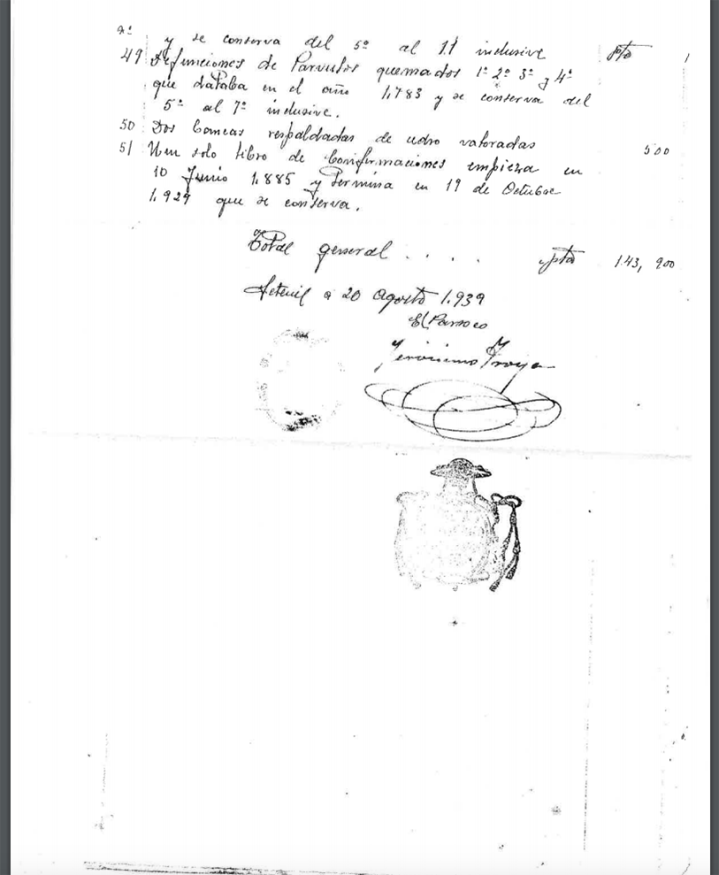 Nº
y se conserva del 5º al 11 inclusive pta
49 Defunciones de Parvulos quemados 1º 2º 3º y 4º
que databa en el año 1,783 y se conserva del
5º al 7º inclusive.
50 Dos bancas respaldadas de cedro valoradas 500
51 Un solo libro de Confirmaciones empieza en
10 Junio 1,885 y termina en 19 de Octubre
1,929 que se conserva.
Total general . . . . pta 143, 900
Setenil a 20 Agosto 1,939
El Parroco
Jeronimo Troya